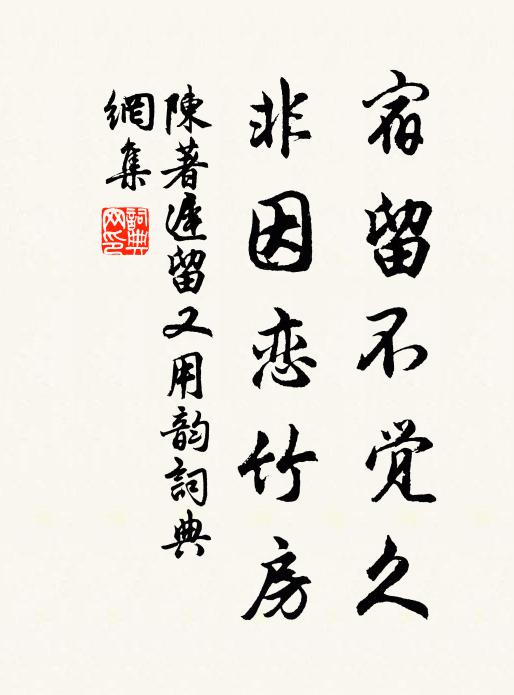 宿留不觉久
非因恋竹房
陳著遲留又用韵詞典
網集
詞典
网印